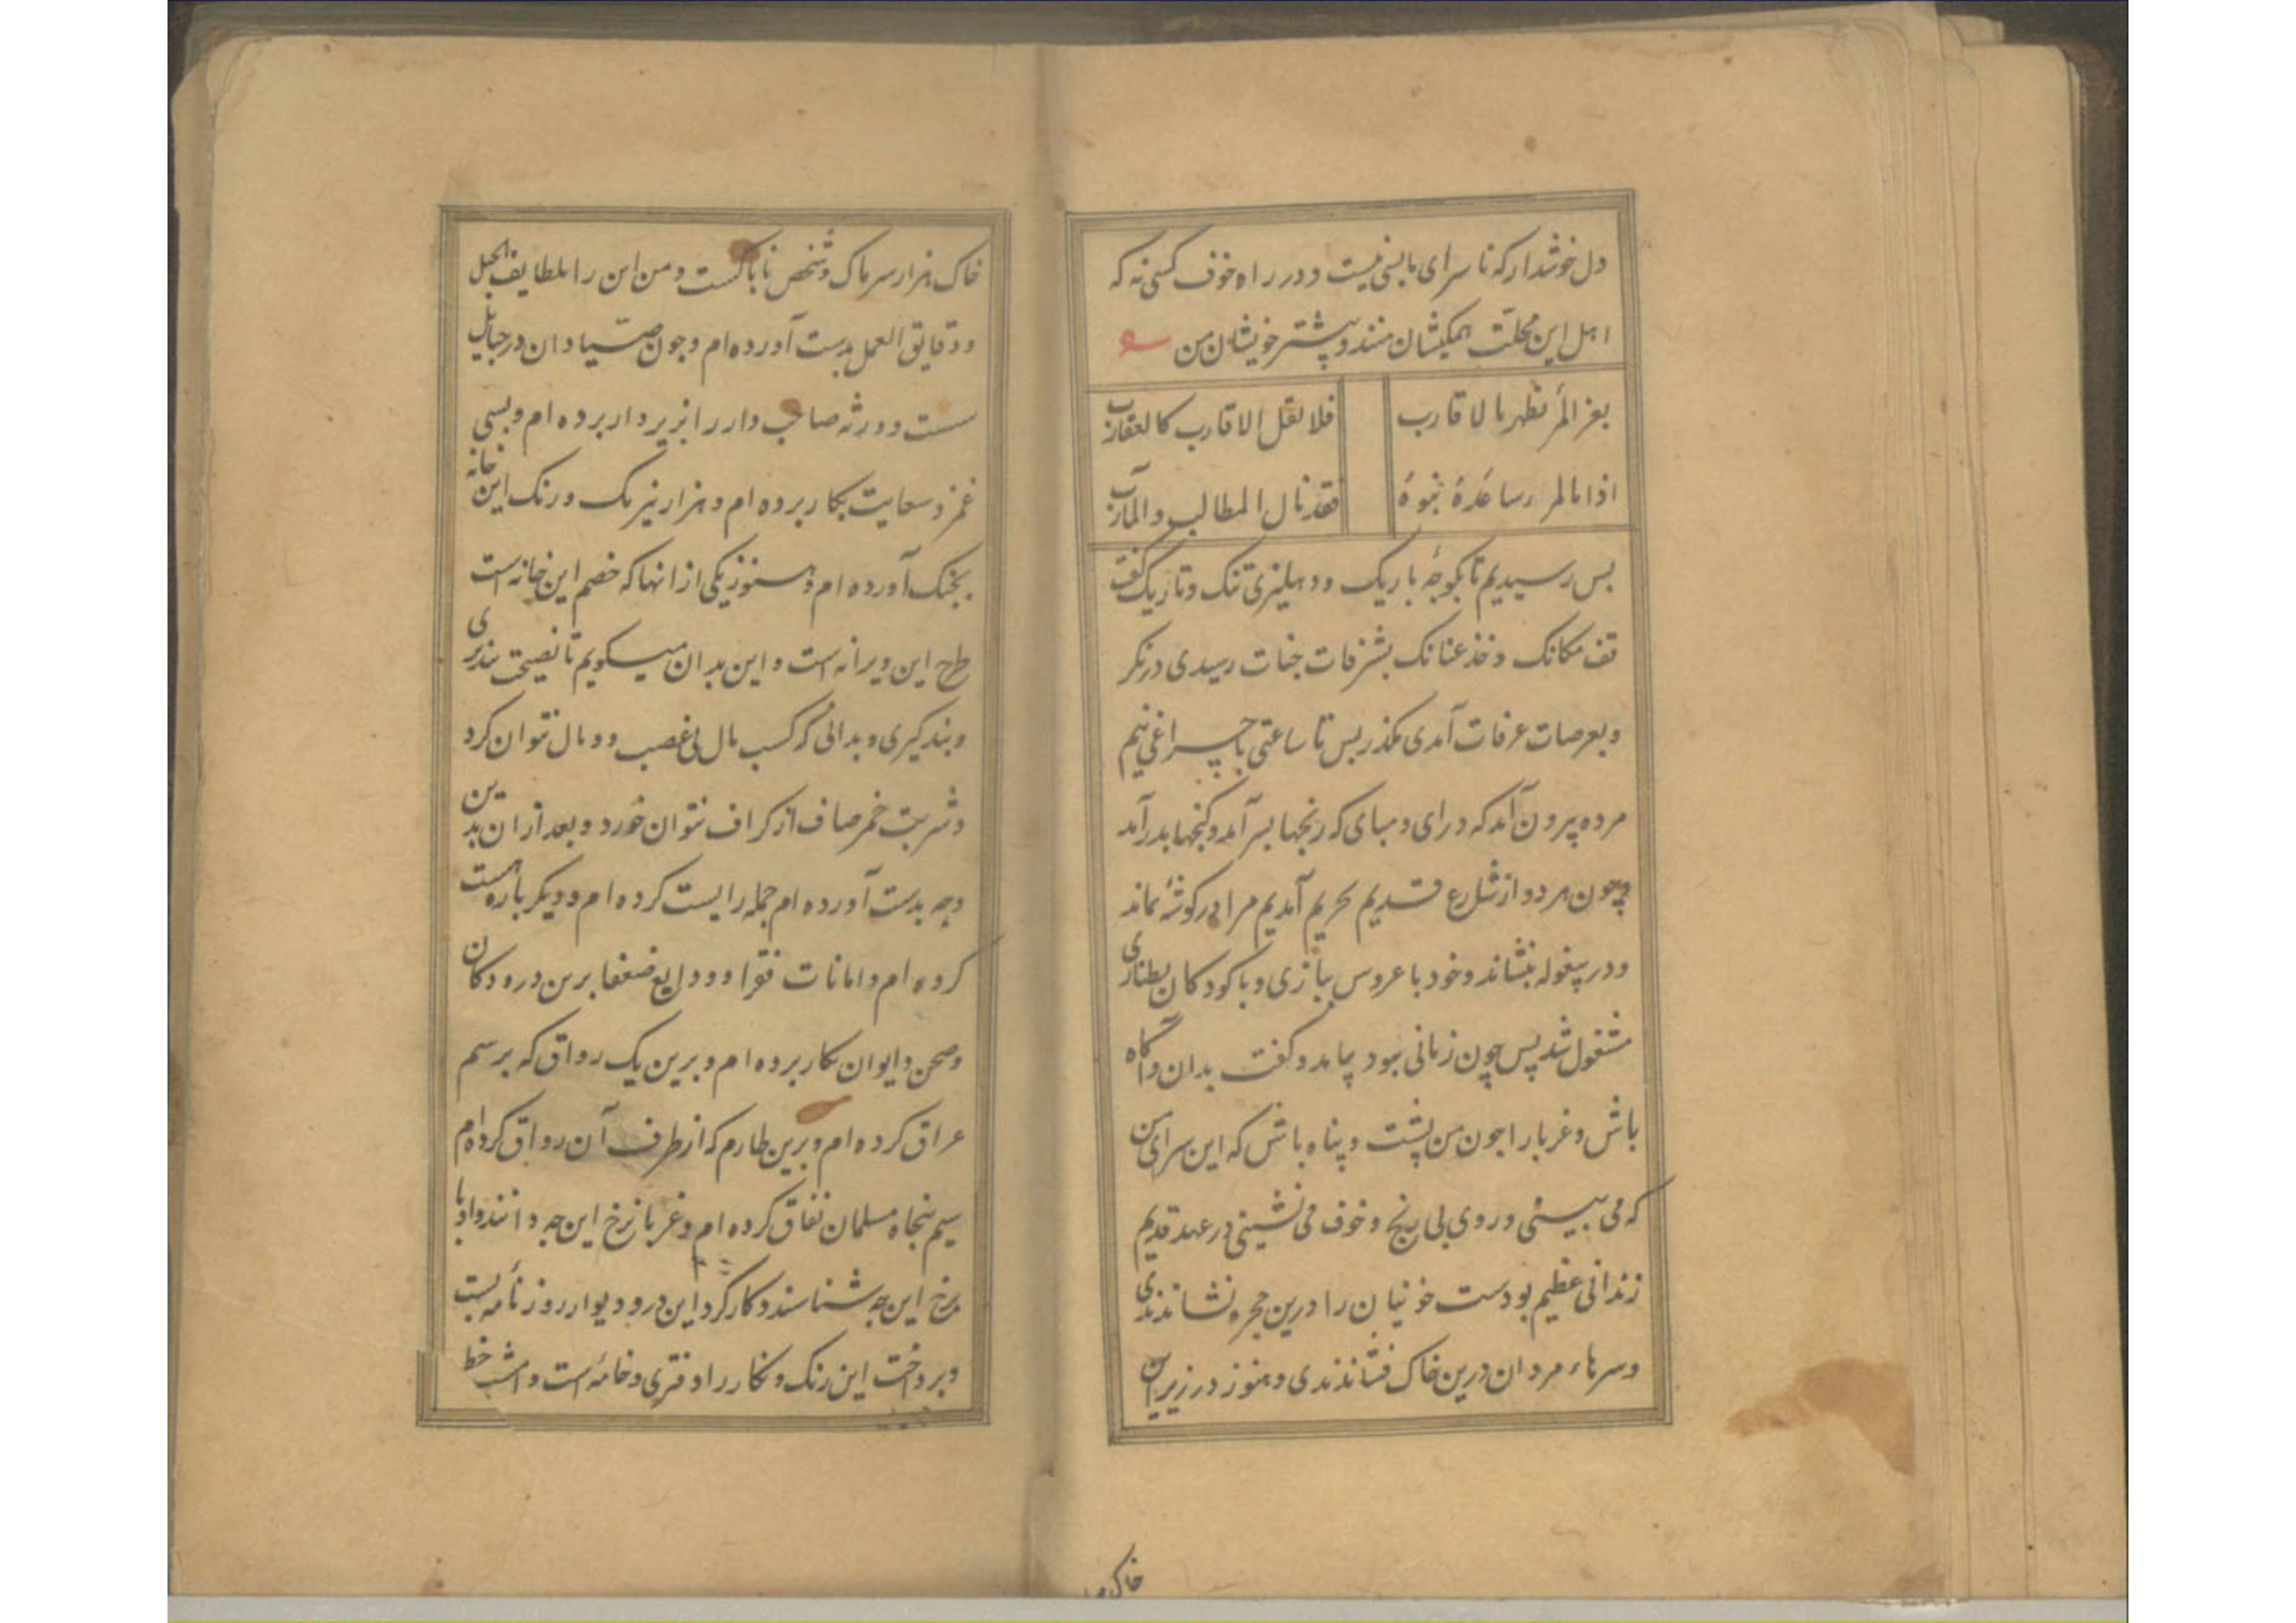 دل خوشدار که تا سرای ما بسی نیست و در راه خوف کسی نه که
اهل این محلت همکیشان منند و پیشتر خویشان من
بعز المرء نظهر بالاقارب
فلا تقل الاقارب کالعقارب
اذا ما المرء ساعده بنوه
فقد نال المطالب والمآرب
بس رسیدیم تا بکوچه باریک و دهلیزی تنک و تاریک گفت
قف مکانک و خذ عنانک بشرفات جنات رسیدی درنکر
و بعرصات عرفات آمدی بکذر بس تا ساعتی با چراغی نیم
مرده بیرون آمد که درای و میای که رنجها بسر آمد و کنجها بدر آمد
چون هر دو از شارع قدیم بحریم آمدیم مرا در کوشهٔ بماند
و در بیغوله بنشاند و خود با عروس ببازی و با کودکان بطنازی
مشغول شد پس چون زمانی ببود بیامد و گفت بدان و آکاه
باش و غربا را چون من پشت و پناه باش که این سرای من
که می بینی و روی بی رنج و خوف می نشینی در عهد قدیم
زندانی عظیم بودست خونیان را درین حجره نشاندندی
و سرهاء مردان درین خاک فشاندندی و هنوز در زیر این
خاک
خاک هزار سر پاک و شخص ناپاکست و من این را بلطایف الحیل
و دقایق العمل بدست آورده ام و چون صیادان در حبایل
سست و ورثه صاحب دار را بزیر دار برده ام و بسی
غمز و سعایت بکار برده ام و هزار نیرنک و رنک این خانه
بچنک آورده ام و هنوز یکی از انها که خصم این خانه است
طرح این ویرانه است و این بدان میگویم تا نصیحت بپذیری
و پند گیری و بدانی که کسب مال بی غصب و وبال نتوان کرد
و شربت خمر صاف از کزاف نتوان خورد و بعد از ان بدین
وجه بدست آورده ام جمله را پست کرده ام و دیکر باره هست
کرده ام و امانات فقرا و ودایع ضعفا برین در و دکان
و صحن و ایوان بکار برده ام و برین یک رواق که برسم
عراق کرده ام و برین طارم که از طرف آن رواق کرده ام
سیم پنجاه مسلمان نفاق کرده ام و غربا نرخ این چه دانند و ادبا
نرخ این چه شناسند و کارکرد این در و دیوار روزنامه ایست
و پرداخت این رنک و نکار را دفتری و خامه است و امشب خط